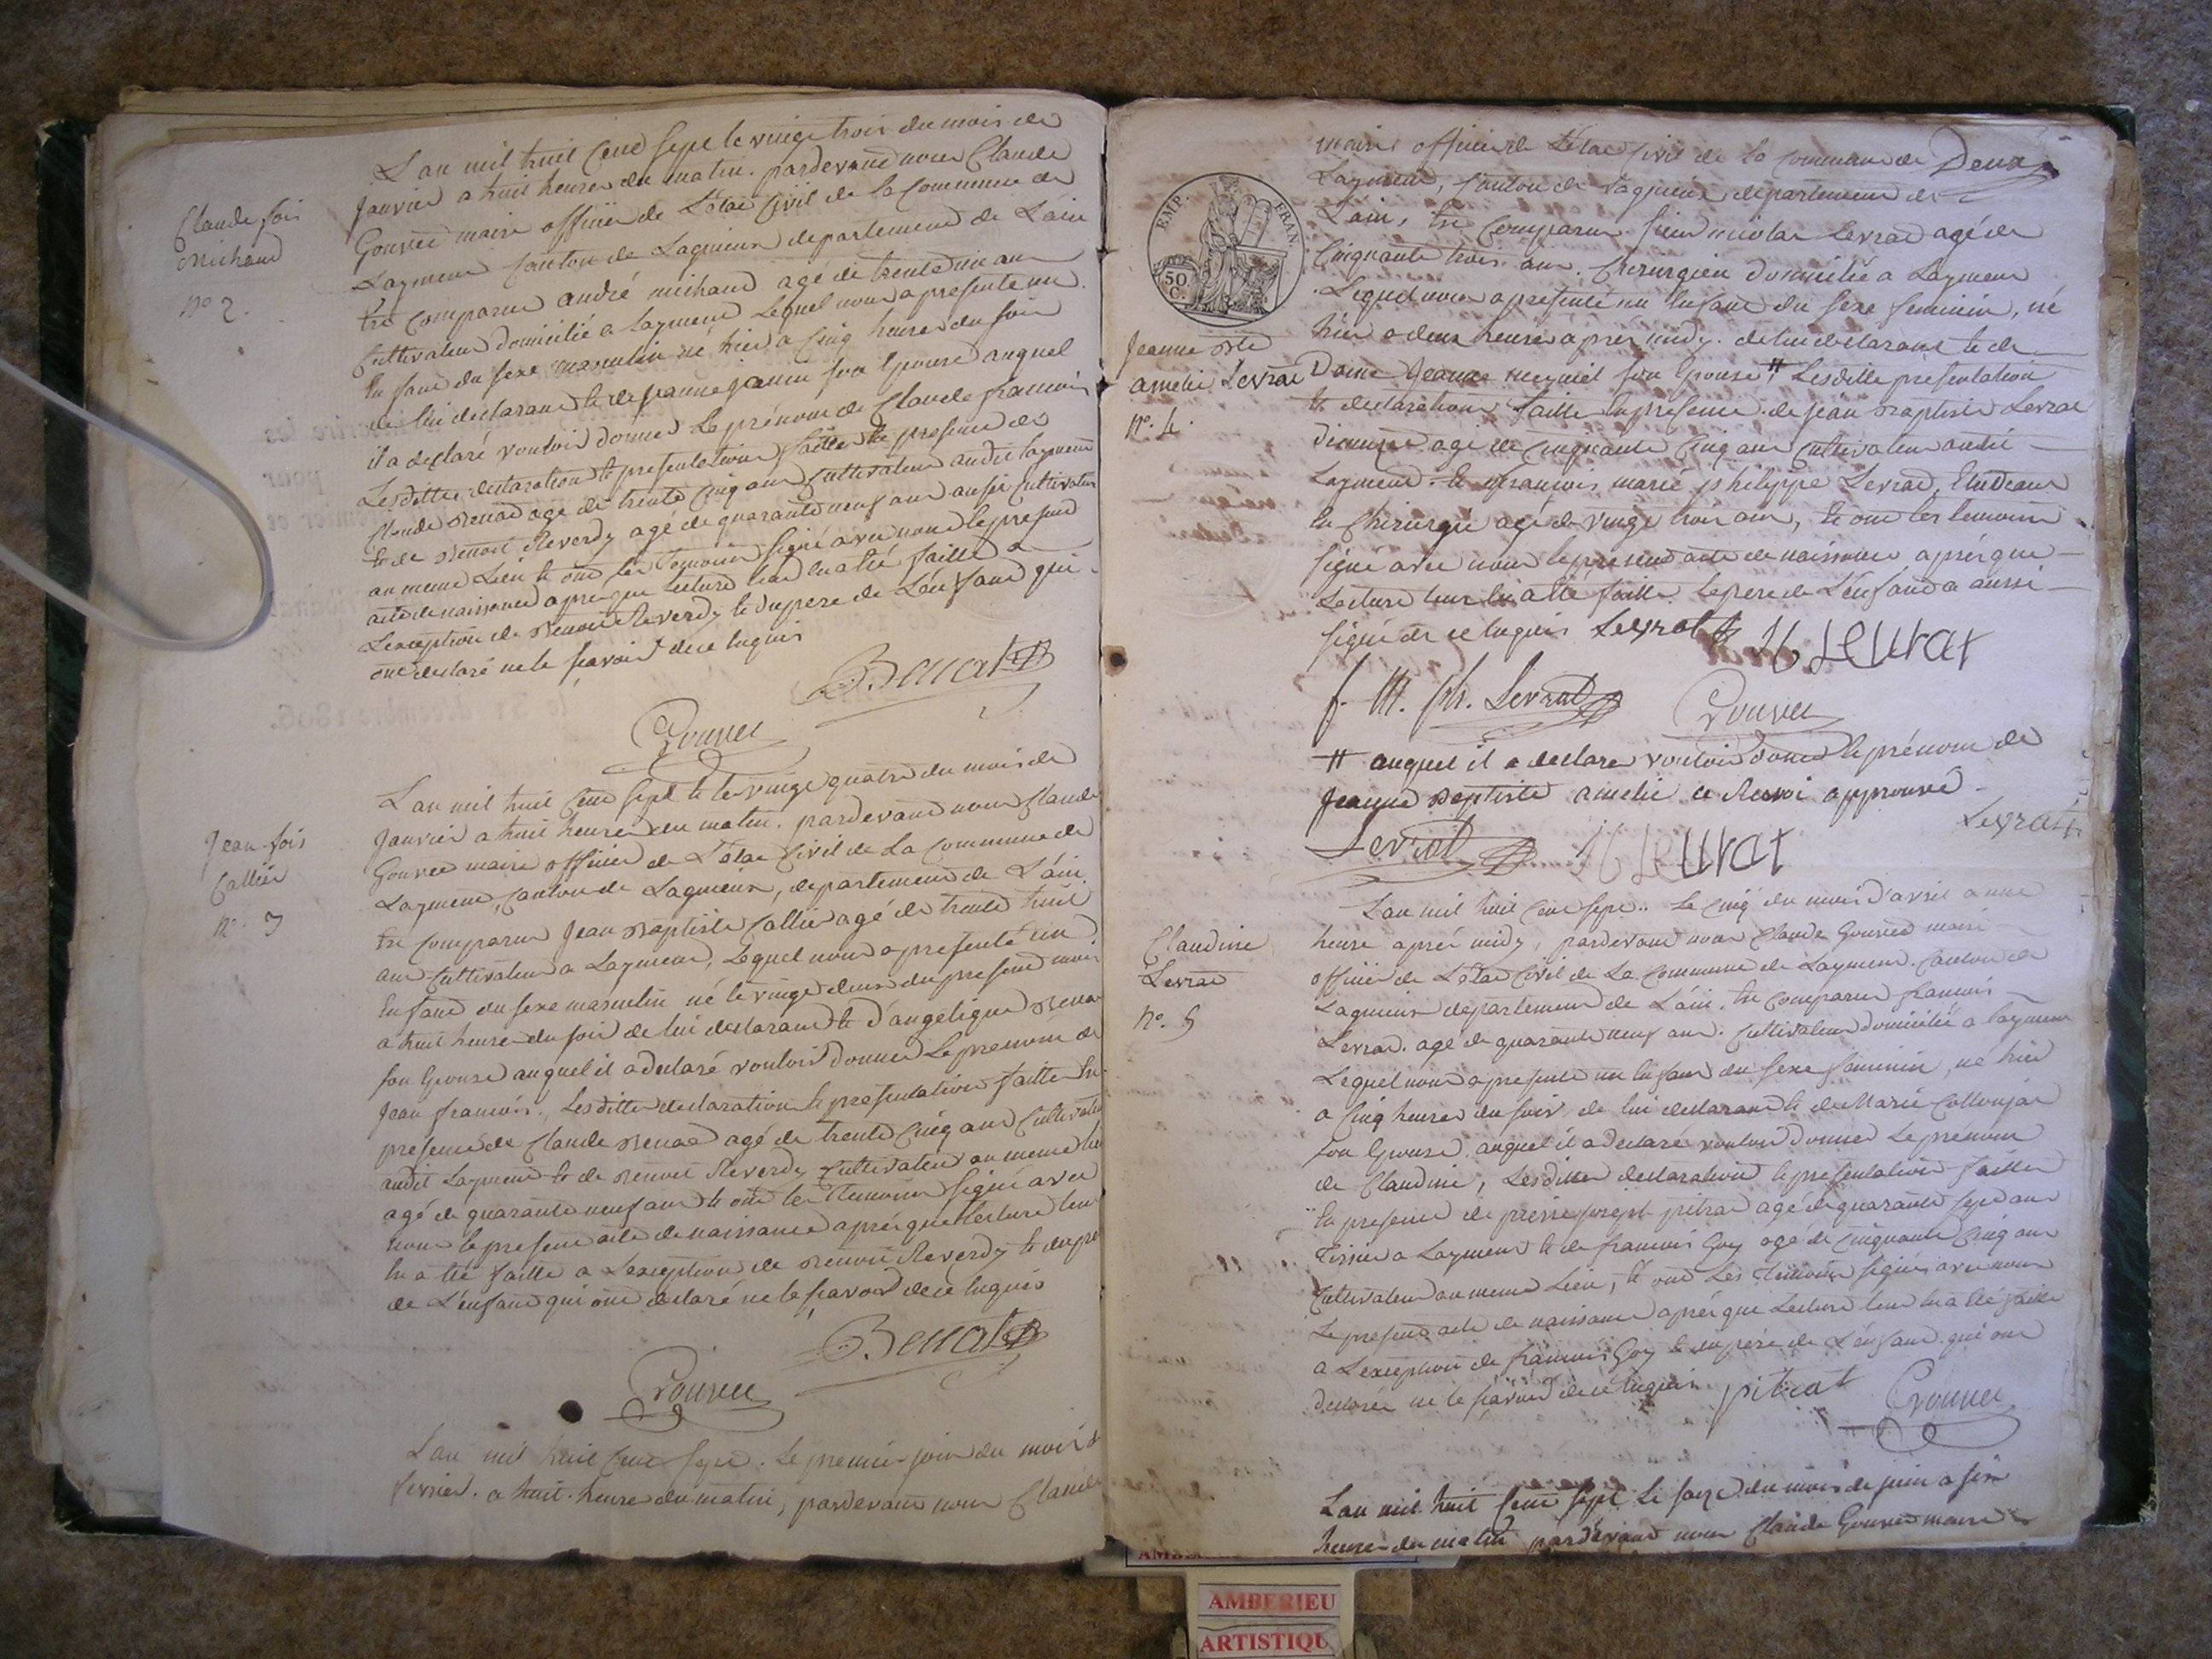 L'an mil huit Cent Sept le vingt trois du mois de
Janvier a huit heures du matin. pardevant nous Claude
Gouvet maire officier de L'état Civil de la Commune de
Laymens Canton de Lagnieux departement de L'ain
Est Comparu andré michaud agé de trente un an
Cultivateur domicilié a laymens Lequel nous a presenté un
Enfant du sexe masculin né hier a Cinq heures du soir
de lui declarant Et de jeanne son Epouse auquel
il a declaré vouloir donner Le prénom de Claude francois
Lesdittes declaration Et presentation faitte En presence de
Claude Benat agé de trente Cinq ans Cultivateur audit laymens
Et de Benoit Reverdy agé de quarante neuf ans aussi Cultivateur
au meme Lieu Et ont les temoins signé avec nous le present
acte de naissance apres que lecture leur En a été faitte a
L'exception de Benoit Reverdy Et du pere de L'enfant qui
ont declaré ne le scavoir de ce Enquis
Benat
Gouvet
Claude fois
michaud
N° 2.
L'an mil huit Cent Sept Et le vingt quatre du mois de
Janvier a huit heures du matin. pardevant nous Claude
Gouvet maire officier de L'état Civil de La Commune de
Laymens, Canton de Lagnieux, departement de L'ain.
Est Comparu Jean Baptiste Collier agé de trente huit
ans Cultivateur a Laymens, Lequel nous a presenté un
Enfant du sexe masculin né le vingt deux du present mois
a huit heures du soir de lui declarant Et d'angelique Bena
son Epouse auquel il a declaré vouloir donner Le prenom de
Jean francois. Lesdittes declaration Et presentation faitte En
presence de Claude Benat agé de trente Cinq ans Cultivateur
audit Laymens Et de Benoit Reverdy Cultivateur au meme lieu
agé de quarante neuf ans Et ont les Temoins signé avec
nous le present acte de naissance aprés que Lecture leur
En a été faitte a L'exception de Benoit Reverdy Et du pere
de L'enfant qui ont declaré ne le scavoir de ce Enquis
Benat
Gouvet
Jean fois
Collier
N°. 3
L'an mil huit Cent Sept. Le premier jour du mois de
fevrier. a huit heures du matin, pardevant nous Claude
maire officier de L'état Civil de la Commune de
Deux
Laymens, Canton de Lagnieux departement de
L'ain, Est Comparu sieur nicolas Levrat agé de
Cinquante trois ans. Chirurgien domicilié a Laymens
Lequel nous a presenté un Enfant du sexe feminin, né
hier a deux heures apres midy. de lui declarant Et de
Dame Jeanne son Epouse # Lesditte presentation
Et declaration faitte En presence de jean Baptiste Levrat
agé de Cinquante Cinq ans Cultivateur audit
Laymens. Et francois marie philippe Levrat, Etudiant
En Chirurgie agé de vingt trois ans, Et ont les temoins
signé avec nous le present acte de naissance aprés que
Lecture leur En a été faitte. le pere de L'enfant a aussi
signé de ce Enquis Levrat N Levrat
f. M. ph. Levrat Gouvet
# auquel il a declaré vouloir donner le prénom de
Jeanne Baptiste amelie ce Renvoi approuvé
Levrat
Levrat N Levrat
EMP. FRAN.
50 C.
Jeanne Bte
amelie Levrat
N°. 4.
L'an mil huit Cent Sept.. Le Cinq du mois d'avril a une
heure aprés midy, pardevant nous Claude Gouvet maire
officier de L'état Civil de La Commune de Laymens. Canton de
Lagnieux departement de L'ain. Est Comparu francois
Levrat. agé de quarante neuf ans. Cultivateur domicilié a laymens
Lequel nous a presenté un Enfant du sexe feminin, né hier
a Cinq heures du soir, de lui declarant Et de Marie Collonjat
son Epouse. auquel il a declaré vouloir donner Le prénom
de Claudine, Lesdittes declaration Et presentation faittes
En presence de pierre joseph pitrat agé de quarante sept ans
Tissier a Laymens Et de francois Goy agé de Cinquante Cinq ans
Cultivateur au meme Lieu, Et ont Les Temoins signés avec nous
Le present acte de naissance aprés que Lecture leur En a été faitte
a L'exception de francois Goy Et du pére de L'enfant qui ont
declarés ne le scavoir de ce Enquis. pitrat Gouvet
Claudine
Levrat
N°. 5
L'an mil huit Cent Sept Le seize du mois de juin a six
heures du matin pardevant nous Claude Gouvet maire
AMBERIEU
ARTISTIQU